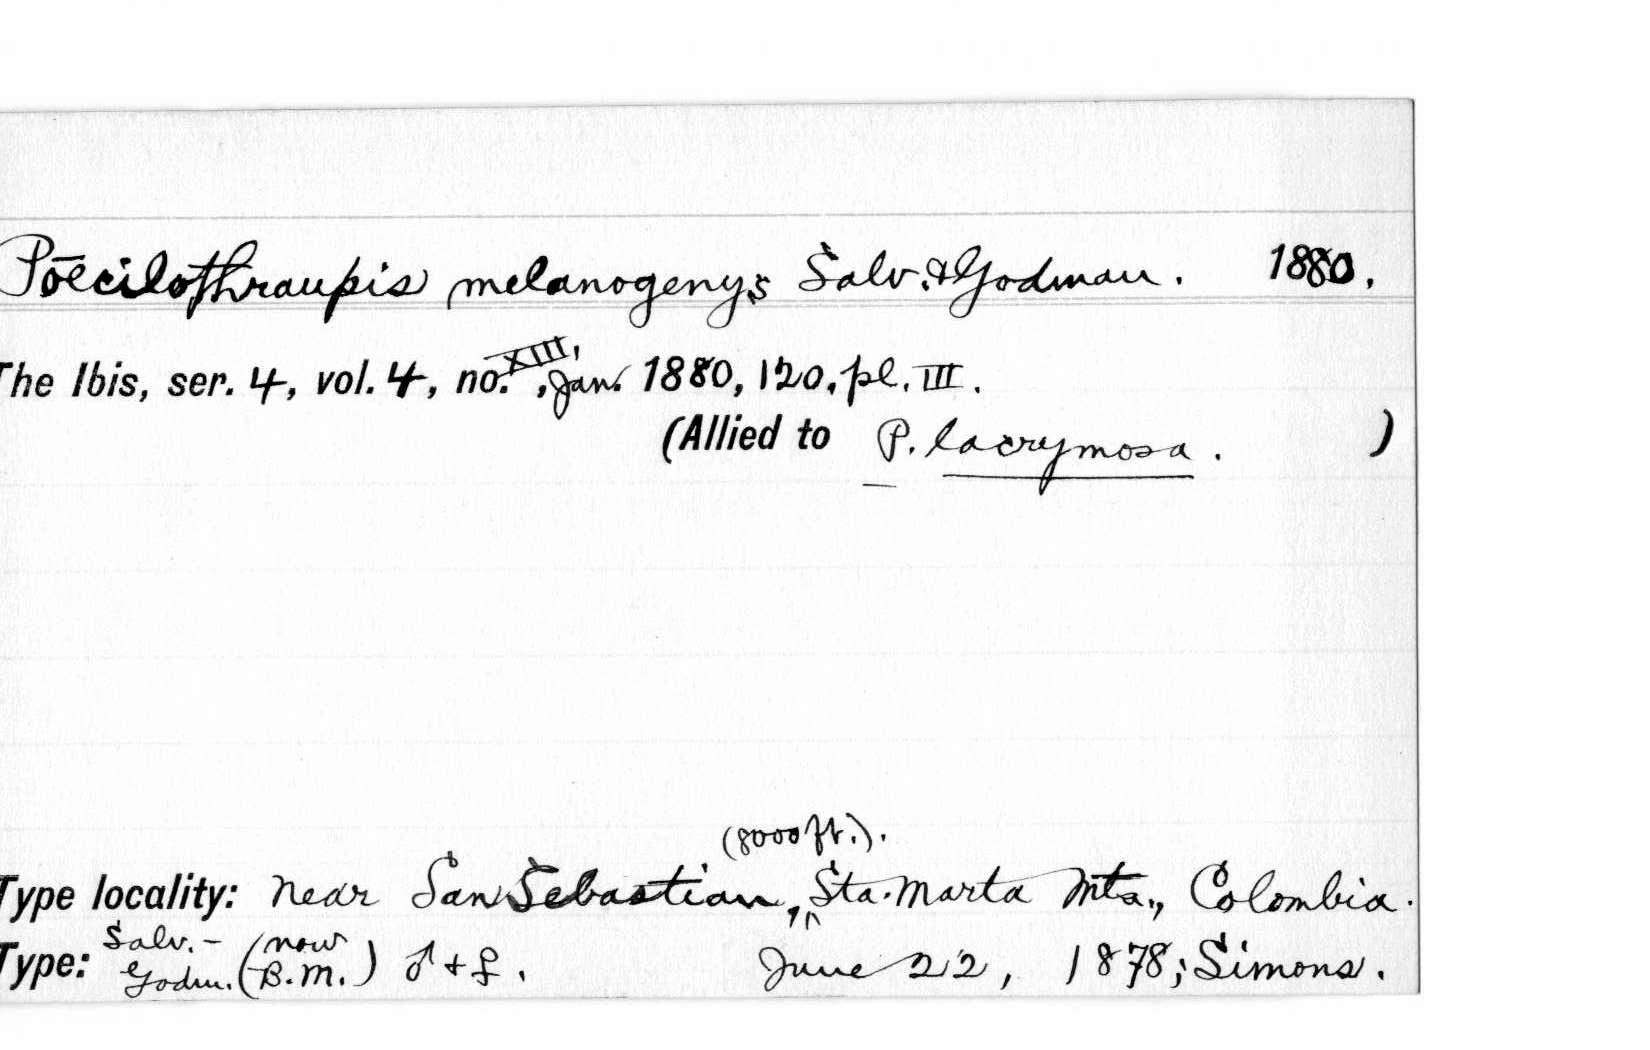 Poecilothraupis melanogenys Salv. & Godman. 1880.
The Ibis, ser. 4, vol. 4, no. XIII, Jan. 1880, 120, pl. III.
(Allied to P. lacrymosa. )
(8000 ft.).
Type locality: near San Sebastian, Sta. Marta Mts., Colombia.
Type: Salv.-Godm. (now B.M.) ♂ + ♀. June 22, 1878; Simons.